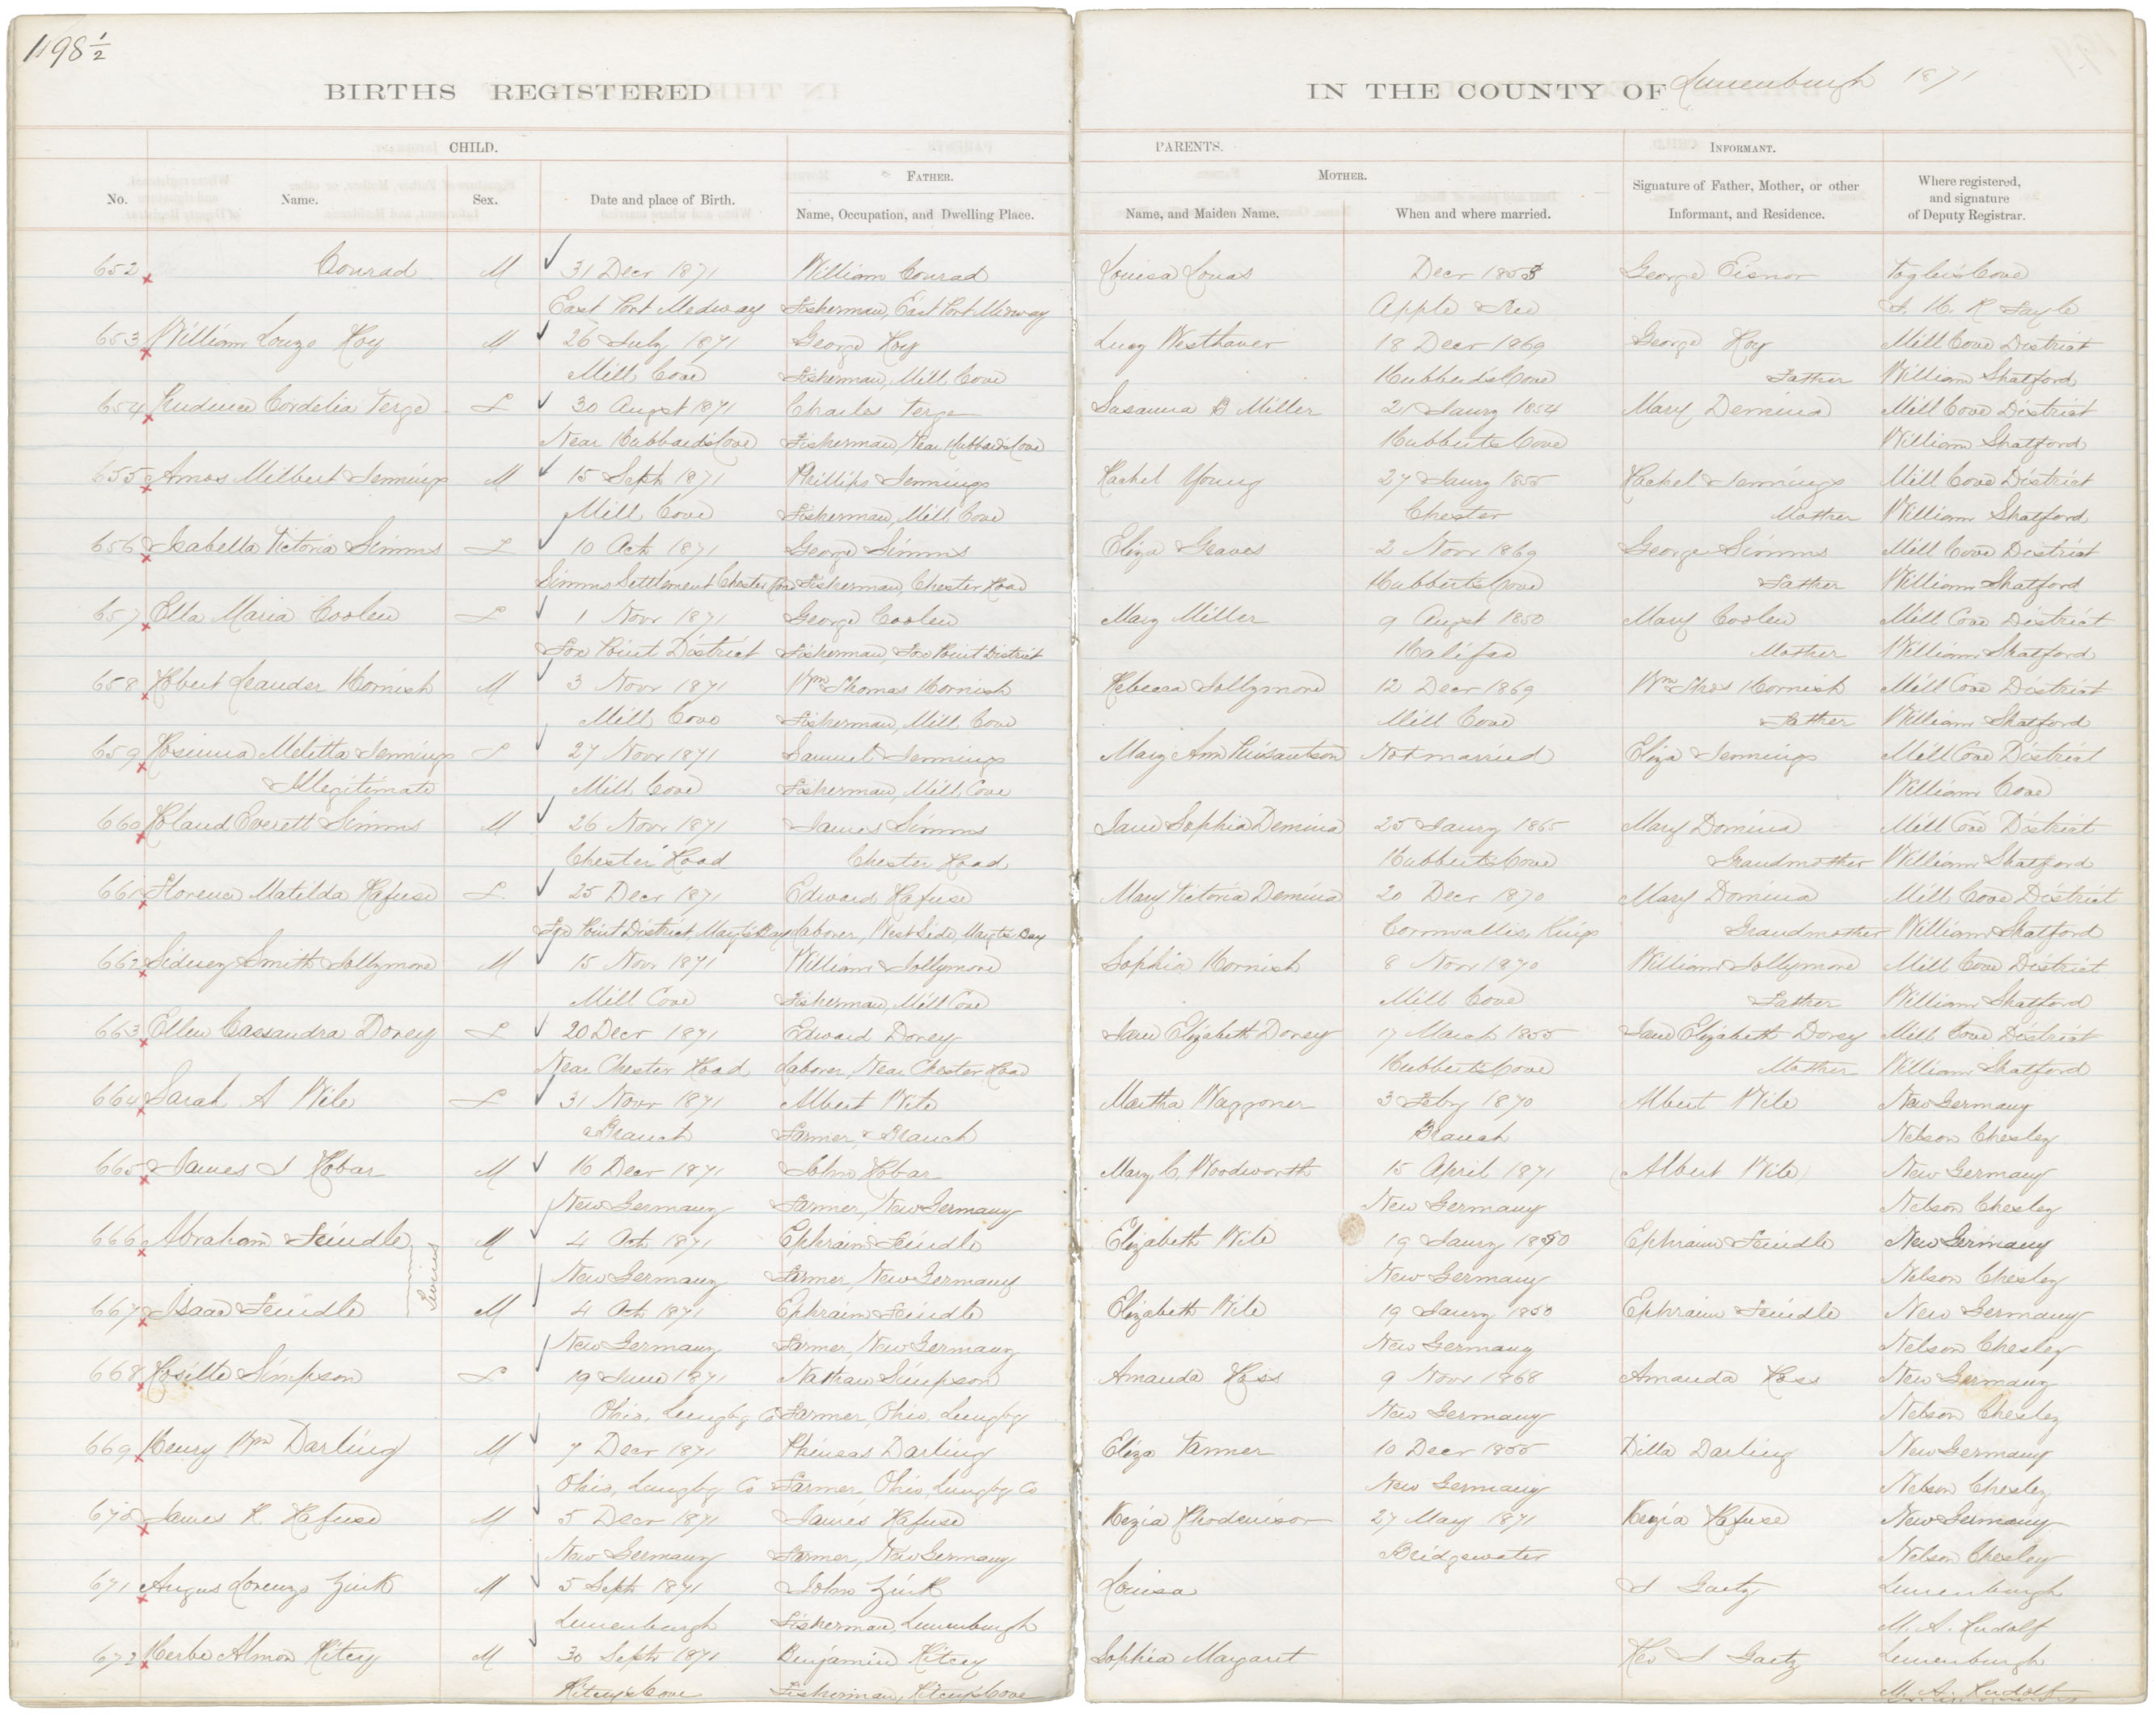 1198 1/2
BIRTHS REGISTERED IN THE COUNTY OF Lunenburgh 1871
CHILD. PARENTS. INFORMANT.
FATHER. MOTHER.
No. Name. Sex. Date and place of Birth. Name, Occupation, and Dwelling Place. Name, and Maiden Name. When and where married. Signature of Father, Mother, or other Informant, and Residence. Where registered, and signature of Deputy Registrar.
652 Conrad M 31 Decr 1871 William Conrad Louisa Lonas Decr 1853 George Eisnor Vogler's Cove
East Port Medway Fisherman, East Port Medway Apple
653 William Louzo Hoy M 26 July 1871 George Hoy Lucy Westhaver 18 Decr 1869 George Hoy Mill Cove District
Mill Cove Fisherman, Mill Cove Hubberds Cove Father William Shatford
654 Prudence Cordelia Terge F 30 Augst 1871 Charles Terge Susanna B Miller 21 Jany 1854 Mary Demina Mill Cove District
Near Hubbards Cove Fisherman, Near Hubbards Cove Hubberts Cove William Shatford
655 Amos Milbert Jennings M 15 Sept 1871 Phillips Jennings Rachel Young 27 Jany 1855 Rachel Jennings Mill Cove District
Mill Cove Fisherman, Mill Cove Chester Mother William Shatford
656 Isabella Victoria Simms F 10 Oct 1871 George Simms Eliza Graves 2 Novr 1869 George Simms Mill Cove District
Simms Settlement Chester Road Fisherman, Chester Road Hubberts Cove Father William Shatford
657 Ella Maria Coolen F 1 Novr 1871 George Coolen Mary Miller 9 Augst 1850 Mary Coolen Mill Cove District
Fox Point District Fisherman, Fox Point District Halifax Mother William Shatford
658 Robert Leander Cornish M 3 Novr 1871 Wm Thomas Cornish Rebecca Jollymore 12 Decr 1869 Wm Thos Cornish Mill Cove District
Mill Cove Fisherman, Mill Cove Mill Cove Father William Shatford
659 Rosinna Melitta Jennings F 27 Novr 1871 Samuel Jennings Mary Ann Not married Eliza Jennings Mill Cove District
Illegitimate Mill Cove Fisherman, Mill Cove William Cove
660 Roland Everett Simms M 26 Novr 1871 James Simms Jane Sophia Demina 25 Jany 1865 Mary Domina Mill Cove District
Chester Road Chester Road Hubberts Cove Grandmother William Shatford
661 Florence Matilda Rafuse F 25 Decr 1871 Edward Rafuse Mary Victoria Demina 20 Decr 1870 Mary Domina Mill Cove District
Fox Point District, Margts Bay Laborer, West Side, Margts Bay Cornwallis, Kings Grandmother William Shatford
662 Sidney Smith Jollymore M 15 Novr 1871 William Jollymore Sophia Cornish 8 Novr 1870 William Jollymore Mill Cove District
Mill Cove Fisherman, Mill Cove Mill Cove Father William Shatford
663 Ellen Cassandra Dorey F 20 Decr 1871 Edward Dorey Jane Elizabeth Dorey 17 March 1855 Jane Elizabeth Dorey Mill Cove District
Near Chester Road Laborer, Near Chester Road Hubberts Cove Mother William Shatford
664 Sarah A Wile F 31 Novr 1871 Albert Wile Martha Waggoner 3 Feby 1870 Albert Wile New Germany
Branch Farmer, Branch Branch Nelson Chesley
665 James J Robar M 16 Decr 1871 John Robar Mary C. Woodworth 15 April 1871 (Albert Wile) New Germany
New Germany Farmer, New Germany New Germany Nelson Chesley
666 Abraham Feindle M 4 Oct 1871 Ephraim Feindle Elizabeth Wile 19 Jany 1850 Ephraim Feindle New Germany
Twins New Germany Farmer, New Germany New Germany Nelson Chesley
667 Isaac Feindle M 4 Oct 1871 Ephraim Feindle Elizabeth Wile 19 Jany 1850 Ephraim Feindle New Germany
New Germany Farmer, New Germany New Germany Nelson Chesley
668 Rosilla Simpson F 19 June 1871 Nathan Simpson Amanda Ross 9 Novr 1868 Amanda Ross New Germany
Ohio, Lungbg Co Farmer, Ohio, Lungbg New Germany Nelson Chesley
669 Henry Wm Darling M 7 Decr 1871 Phineas Darling Eliza Tanner 10 Decr 1855 Dilla Darling New Germany
Ohio, Lungbg Co Farmer, Ohio, Lungbg Co New Germany Nelson Chesley
670 James R. Rafuse M 5 Decr 1871 James Rafuse Kezia Rhodenisor 27 May 1871 Kezia Rafuse New Germany
New Germany Farmer, New Germany Bridgewater Nelson Chesley
671 Angus Lorenzo Zink M 5 Sept 1871 John Zink Louisa J Gaetz Lunenburgh
Lunenburgh Fisherman, Lunenburgh M. A. Rudolf
672 Herbe Almon Ritcey M 30 Sept 1871 Benjamin Ritcey Sophia Margaret Rev J Gaetz Lunenburgh
Ritcey's Cove Fisherman, Ritcey's Cove M. A. Rudolf